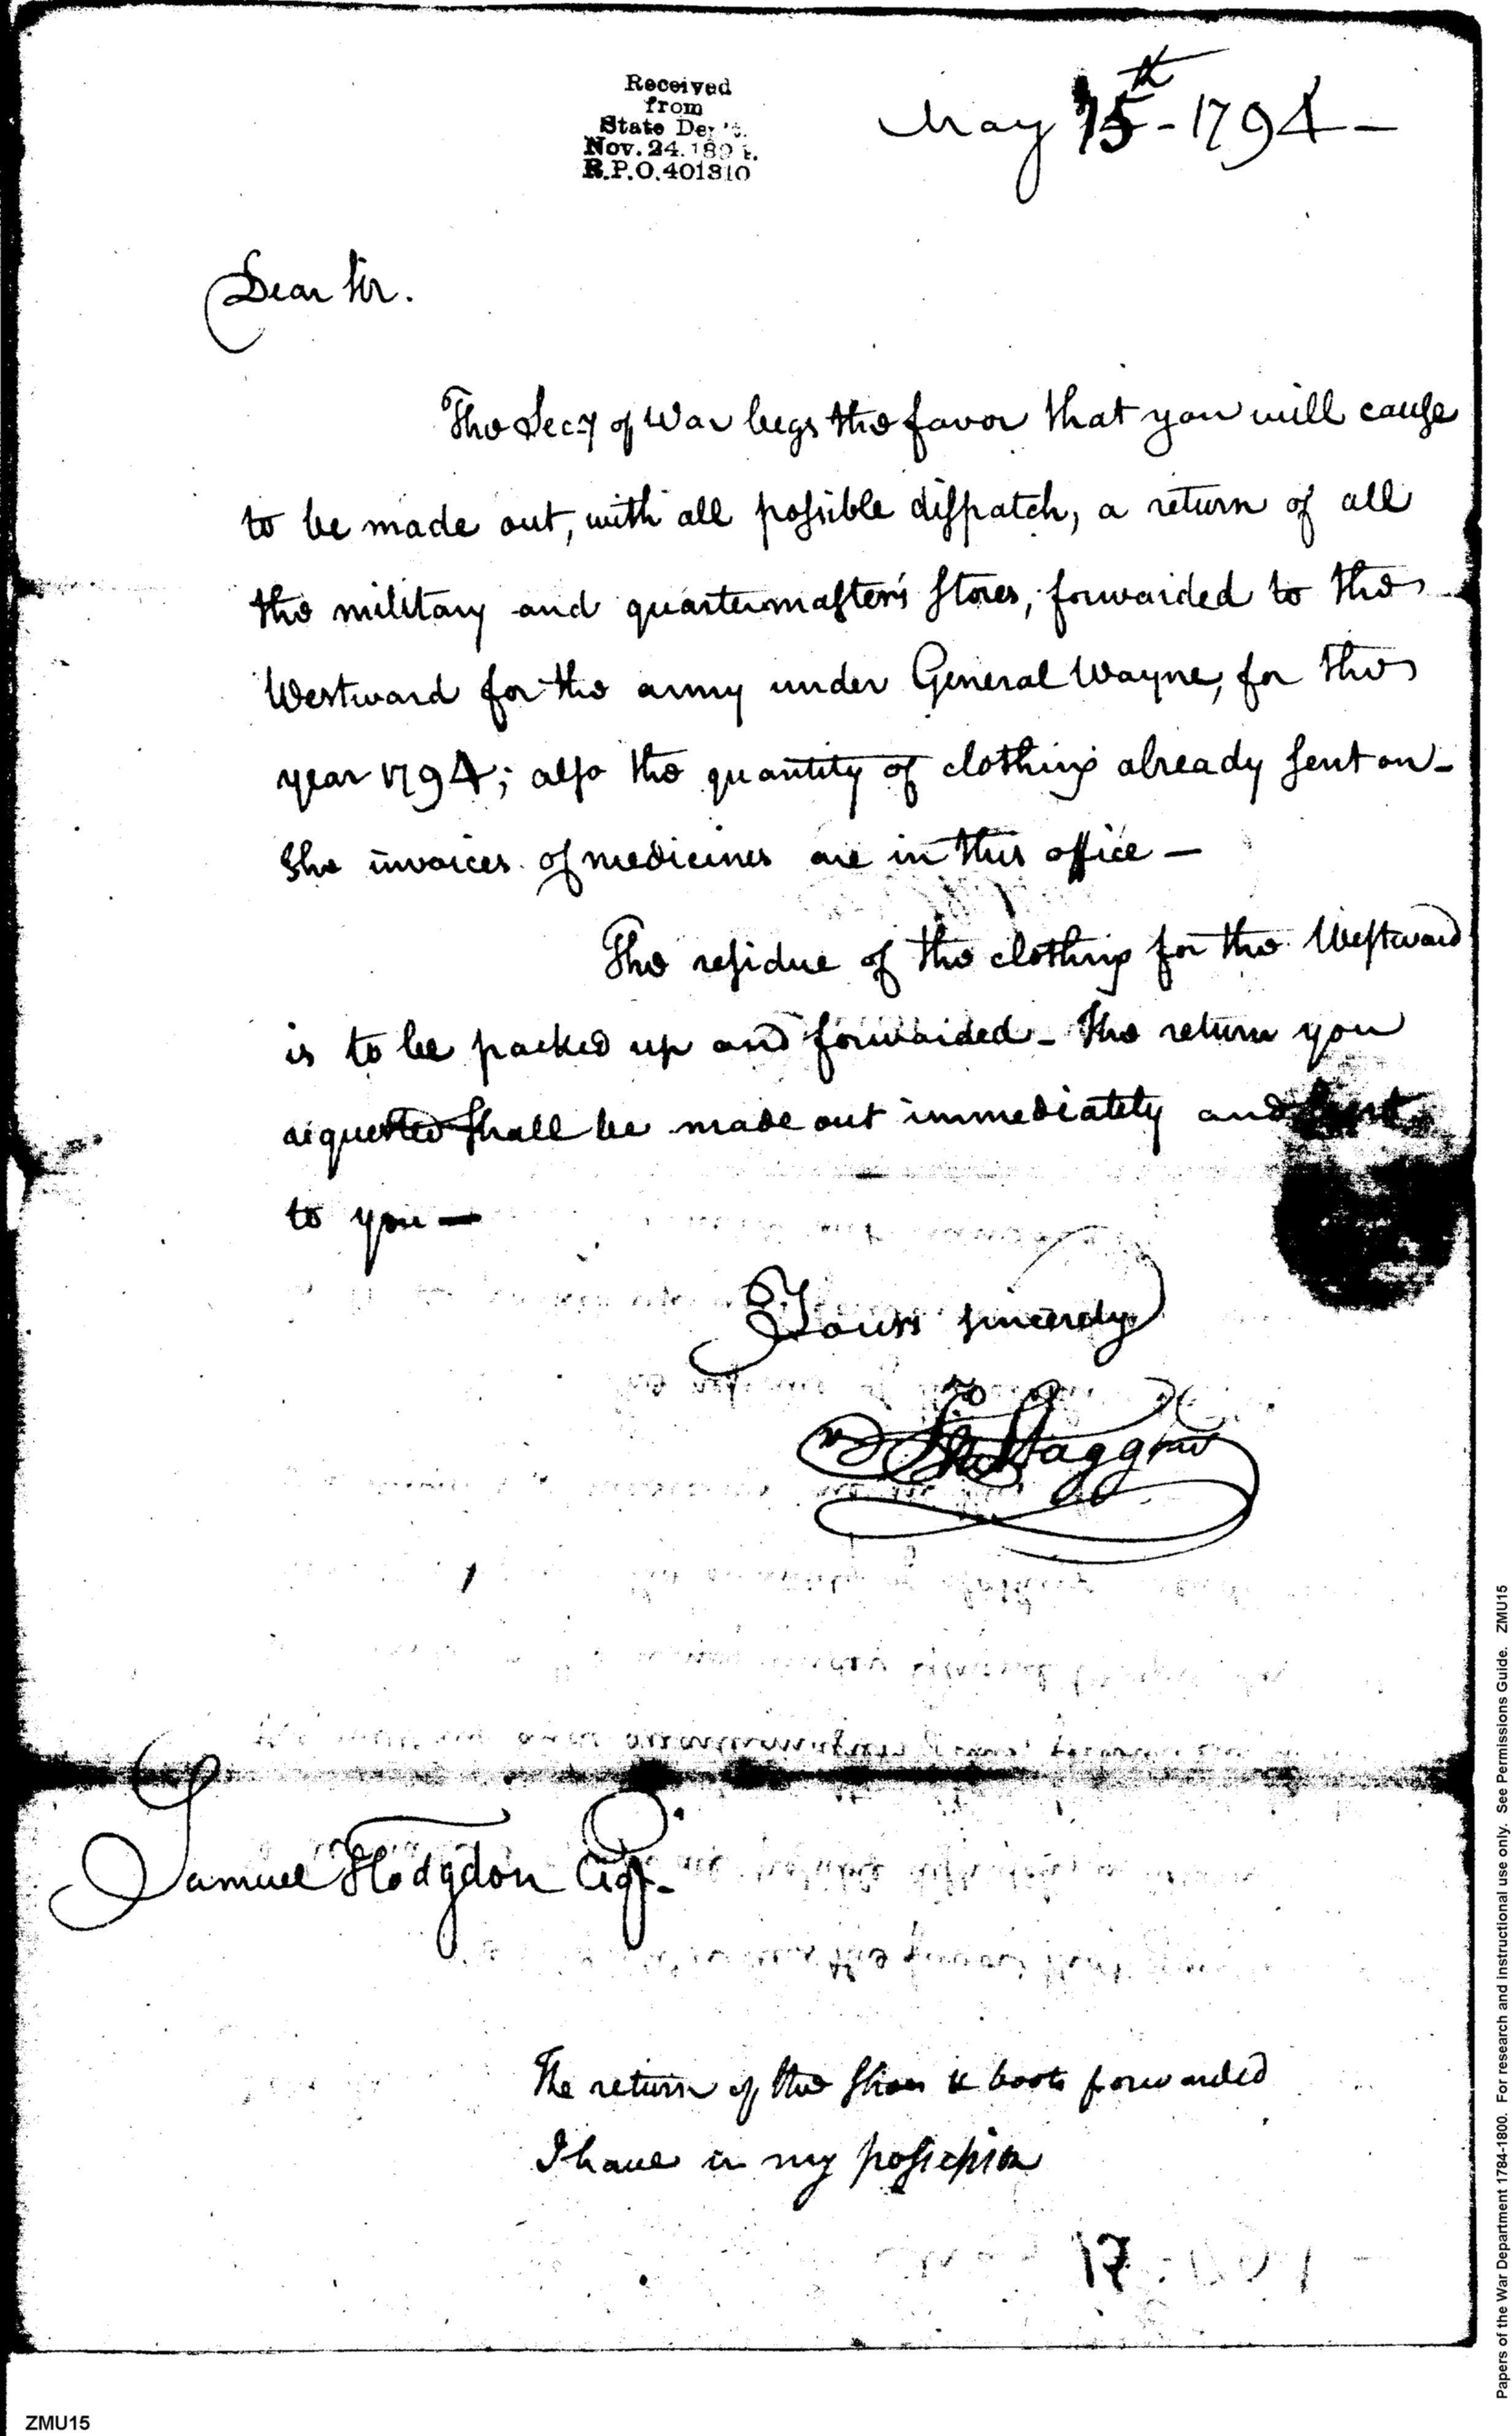 Received
from
State Dep't.
Nov. 24. 189
R.P.O. 401310
May 15th - 1794 -
Dear Sir.
The Secy of War begs the favor that you will cause
to be made out, with all possible dispatch, a return of all
the military and quartermaster's stores, forwarded to the
Westward for the army under General Wayne, for the
year 1794; also the quantity of clothing already sent on -
The invoices of medicines are in this office -
The residue of the clothing for the Westward
is to be packed up and forwarded - The return you
requested shall be made out immediately and sent
to you -
Yours sincerely
Jno Stagg Junr
Samuel Hodgdon Esqr.
The return of the shoes & boots forwarded
I have in my possession
17
ZMU15
Papers of the War Department 1784-1800. For research and instructional use only. See Permissions Guide. ZMU15